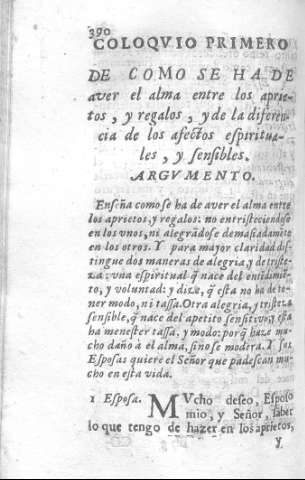 390
COLOQVIO PRIMERO
DE COMO SE HA DE
aver el alma entre los aprie-
tos, y regalos, y de la diferen-
cia de los afectos espiritua-
les, y sensibles.
ARGVMENTO.
Enseña como se ha de aver el alma entre
los aprietos, y regalos: no entristeciendose
en los vnos, ni alegrãdose demasiadamẽte
en los otros. Y para mayor claridad dis-
tingue dos maneras de alegria, y de triste-
za: vna espiritual q̃ nace del entẽdimiẽ-
to, y voluntad: y dize, q̃ esta no ha de te-
ner modo, ni tassa. Otra alegria, y tristeza
sensible, q̃ nace del apetito sensitivo, y esta
ha menester tassa, y modo: porq̃ haze mu-
cho daño à el alma, sino se modera. Y sus
Esposas quiere el Señor que padescan mu-
cho en esta vida.
1 Esposa. MVcho deseo, Esposo
mio, y Señor, saber
lo que tengo de hazer en los aprietos,
y